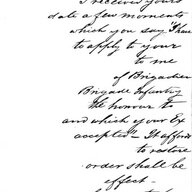 I received yours
date a few moments
which you say I have
to apply to your
to me
of Brigadier
Brigade Infantry
the honour to
and which your Ex
accepted - It affords
to restore
order shall be
effect -